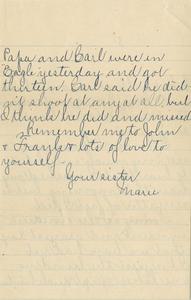 Papa and Carl were in
Eagle yesterday and got
thirteen. Carl said he did-
n't shoot at any at all, but
I think he did and missed
Remember me to John
& Frank & lots of love to
yourself
Your sister
Marie